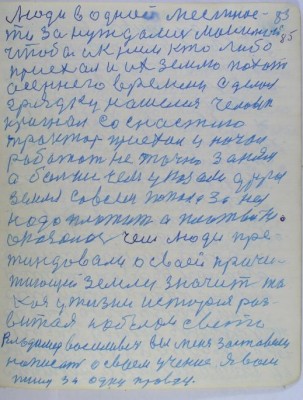 Люди в одной местнос- 83
ти зануждались машиной 85
чтобы к ним кто либо
приехал и их землю пахат
осеннего времени сделал
грядку нашелся человек
крупная со снастию
трактор приехал и начал
работат не точно заняя
а больни чем указали другая
земля совсем за ней
надо платит а платить
оказалос чем люди пре-
тиндовали о своей причи-
тиющий земли значит та-
кая у жизни история раз-
витая на белом свете
Владимер василивич вы меня заставили
написат о своем учение я вам
пишу за одну правду.